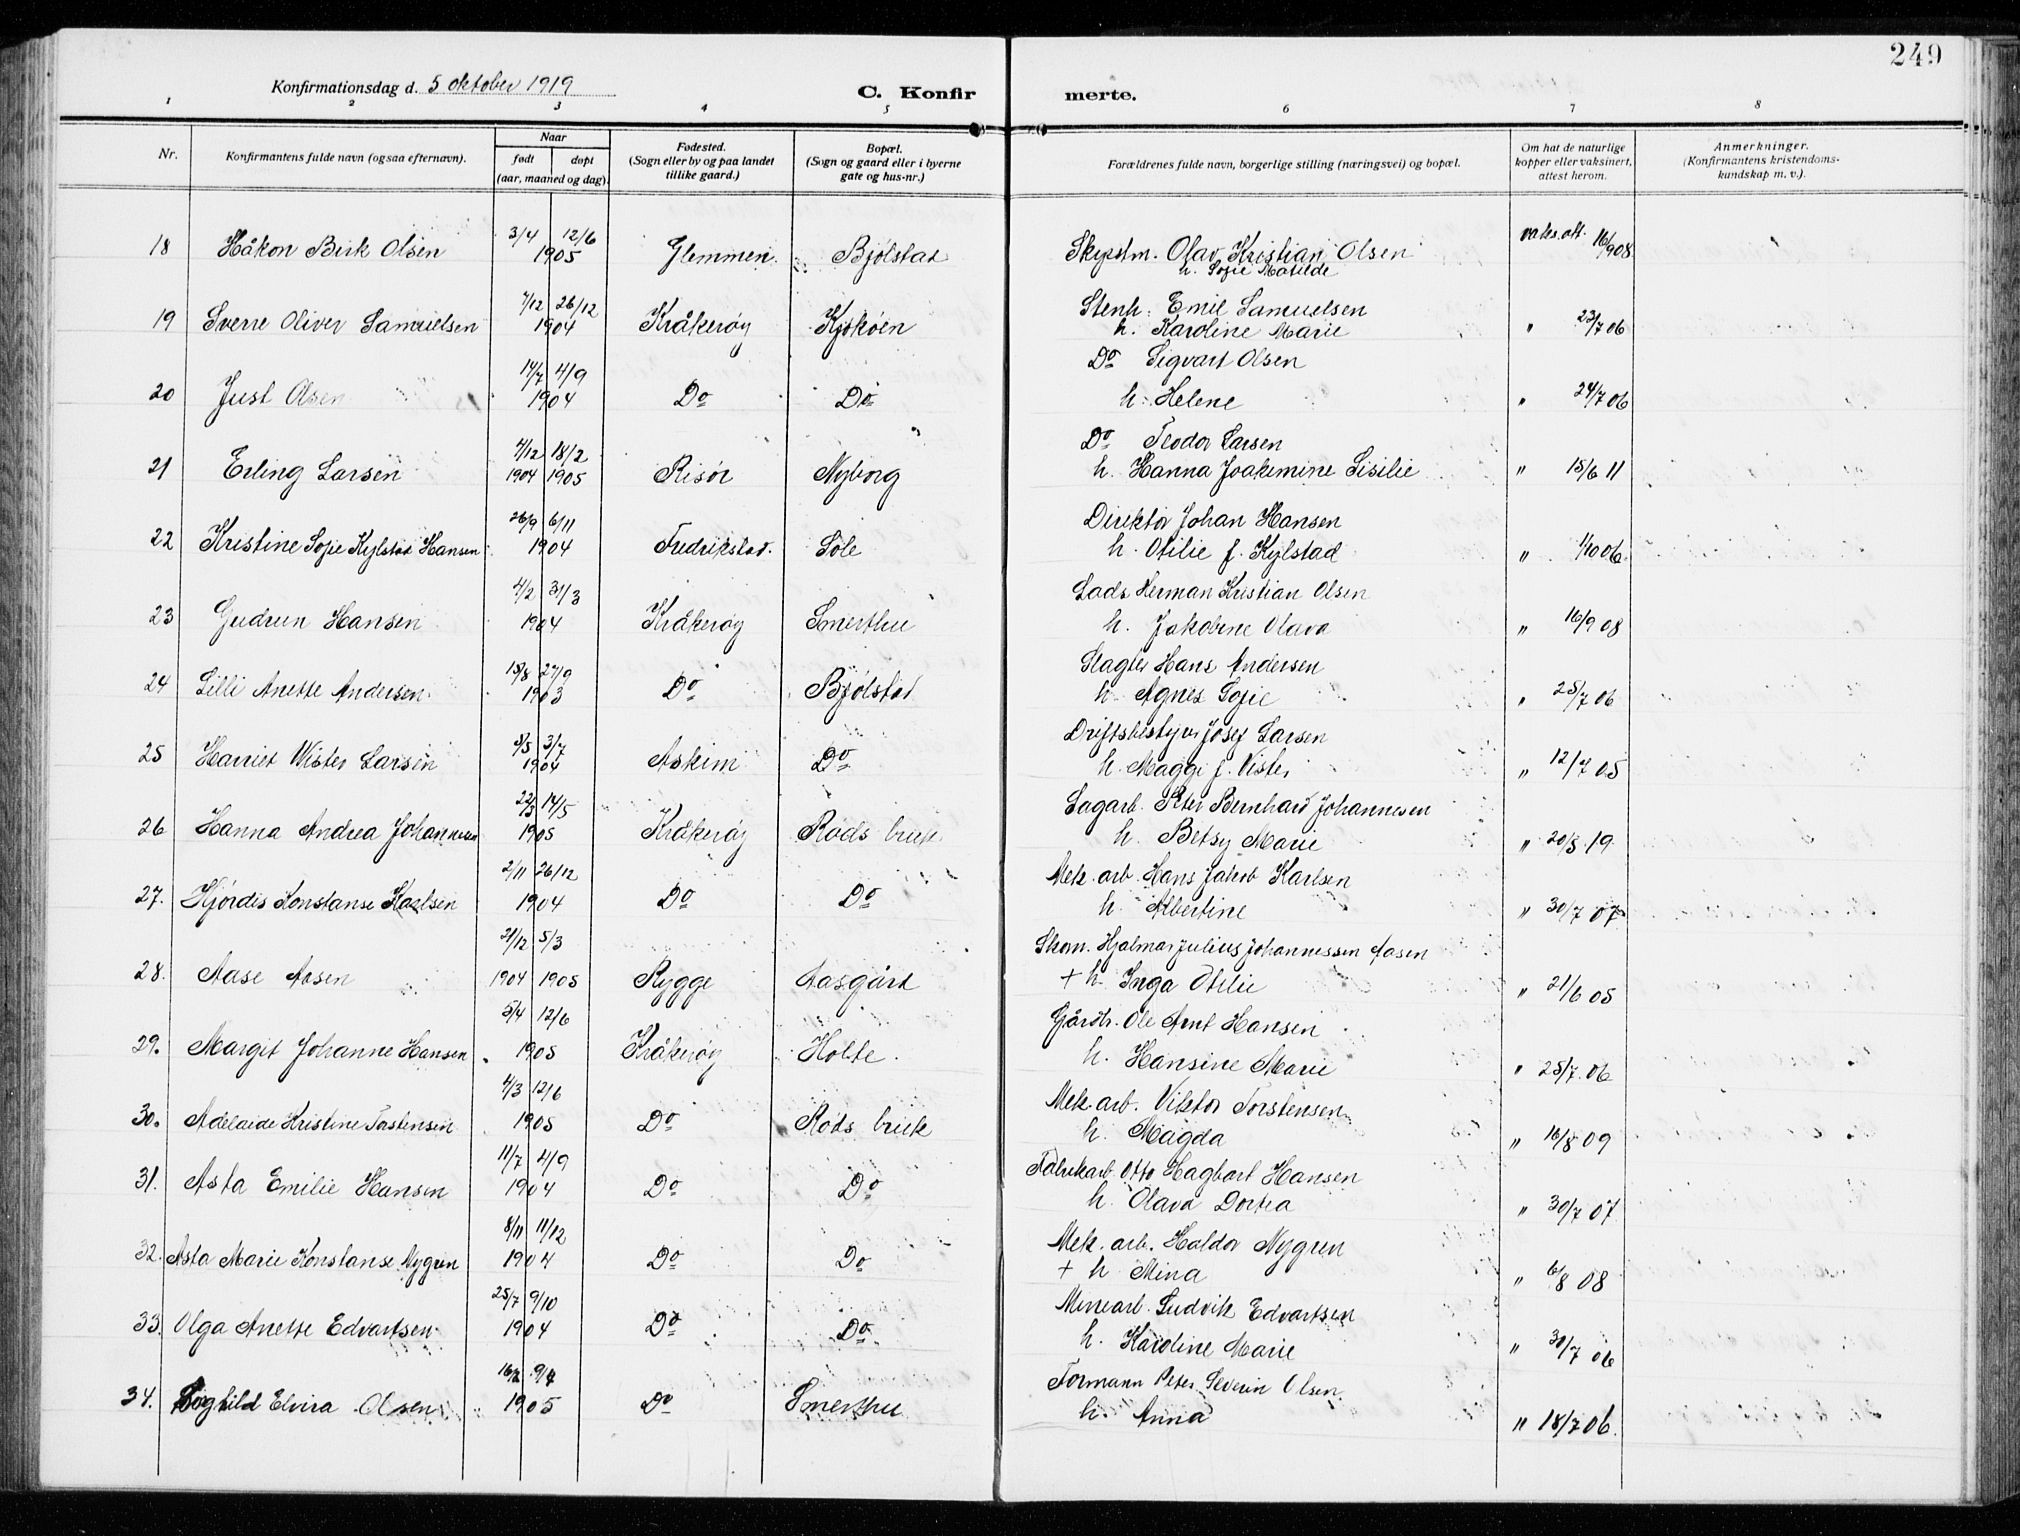 249
Konfirmationsdag d. 5 oktober 1919
C. Konfirmerte.
1 2 3 4 5 6 7 8
Nr. Konfirmantens fulde navn (ogsaa efternavn). Naar født døpt (aar, maaned og dag). Fødested. (Sogn eller by og paa landet tillike gaard.) Bopæl. (Sogn og gaard eller i byerne gate og hus-nr.) Forældrenes fulde navn, borgerlige stilling (næringsvei) og bopæl. Om hat de naturlige kopper eller vaksinert, attest herom. Anmerkninger. (Konfirmantens kristendomskundskap m. v.).
18 Håkon Birk Olsen 3/4 12/6 1905 Glemmen Bjølstad Skipstm. Olav Kristian Olsen vaks. att. 16/9 08
h. Sofie Matilde
19 Sverre Oliver Samuelsen 7/12 26/12 1904 Kråkerøy Kjøkøen Stenh. Emil Samuelsen
h. Karoline Marie " 23/7 06
20 Just Olsen 14/7 4/9 1904 Do Do Do Sigvart Olsen
h. Helene " 24/7 06
21 Erling Larsen 4/12 18/2 1904 1905 Risør Nyborg Do Teodor Larsen
h. Hanna Joakimine Sisilie " 15/6 11
22 Kristine Sofie Kylstad Hansen 26/9 6/11 1904 Fredrikstad. Løle Direktør Johan Hansen
h. Otilie f. Kylstad " 1/10 06.
23 Gudrun Hansen 4/2 31/3 1904 Kråkerøy Smerthu Lods Herman Kristian Olsen
h. Jakobine Olava " 16/9 08
24 Lilli Anette Andersen 15/8 27/9 1903 Do Bjølstad Slagter Hans Andersen
h. Agnes Sofie " 25/7 06
25 Harriet Wister Larsen 8/5 3/7 1904 Askim Do Driftsbestyrer Josef Larsen
h. Maggi f. Vister " 12/7 05
26 Hanna Andrea Johannesen 22/3 14/5 1905 Kråkerøy Røds bruk Sagarb. Peter Bernhard Johannesen
h. Betsy Marie " 20/8 19
27. Hjørdis Konstanse Karlsen 2/11 26/12 1904 Do Do Mek. arb. Hans Jakob Karlsen
h. Albertine " 30/7 07
28. Aase Aasen 21/12 5/3 1904 1905 Rygge Aasgård Skom. Hjalmar Julius Johannessen Aasen
+ h. Inga Otilie " 21/6 05
29. Margit Johanne Hansen 5/4 12/6 1905 Kråkerøy Holte. Gårdbr. Ole Arnt Hansen
h. Hansine Marie " 25/7. 06
30. Adelaide Kristine Torstensen 4/3 12/6 1905 Do Røds bruk Mek. arb. Viktor Torstensen
h. Magda " 16/8 09
31. Asta Emilie Hansen 11/7 4/9 1904 Do Do Fabrikarb. Otto Hagbart Hansen
h. Olava Dortea " 30/7 07
32. Asta Marie Konstanse Nygren 8/11 11/12 1904 Do Do Mek. arb. Haldor Nygren
+ h Mina " 6/8 08
33. Olga Anette Edvartsen 25/7 9/10 1904 Do Do Minearb. Ludvik Edvartsen
h. Karoline Marie " 30/7 06
34. Borghild Elvira Olsen 16/2 9/4 1905 Do Smerthu Formann Peter Severin Olsen
h. Anna " 18/7 06.